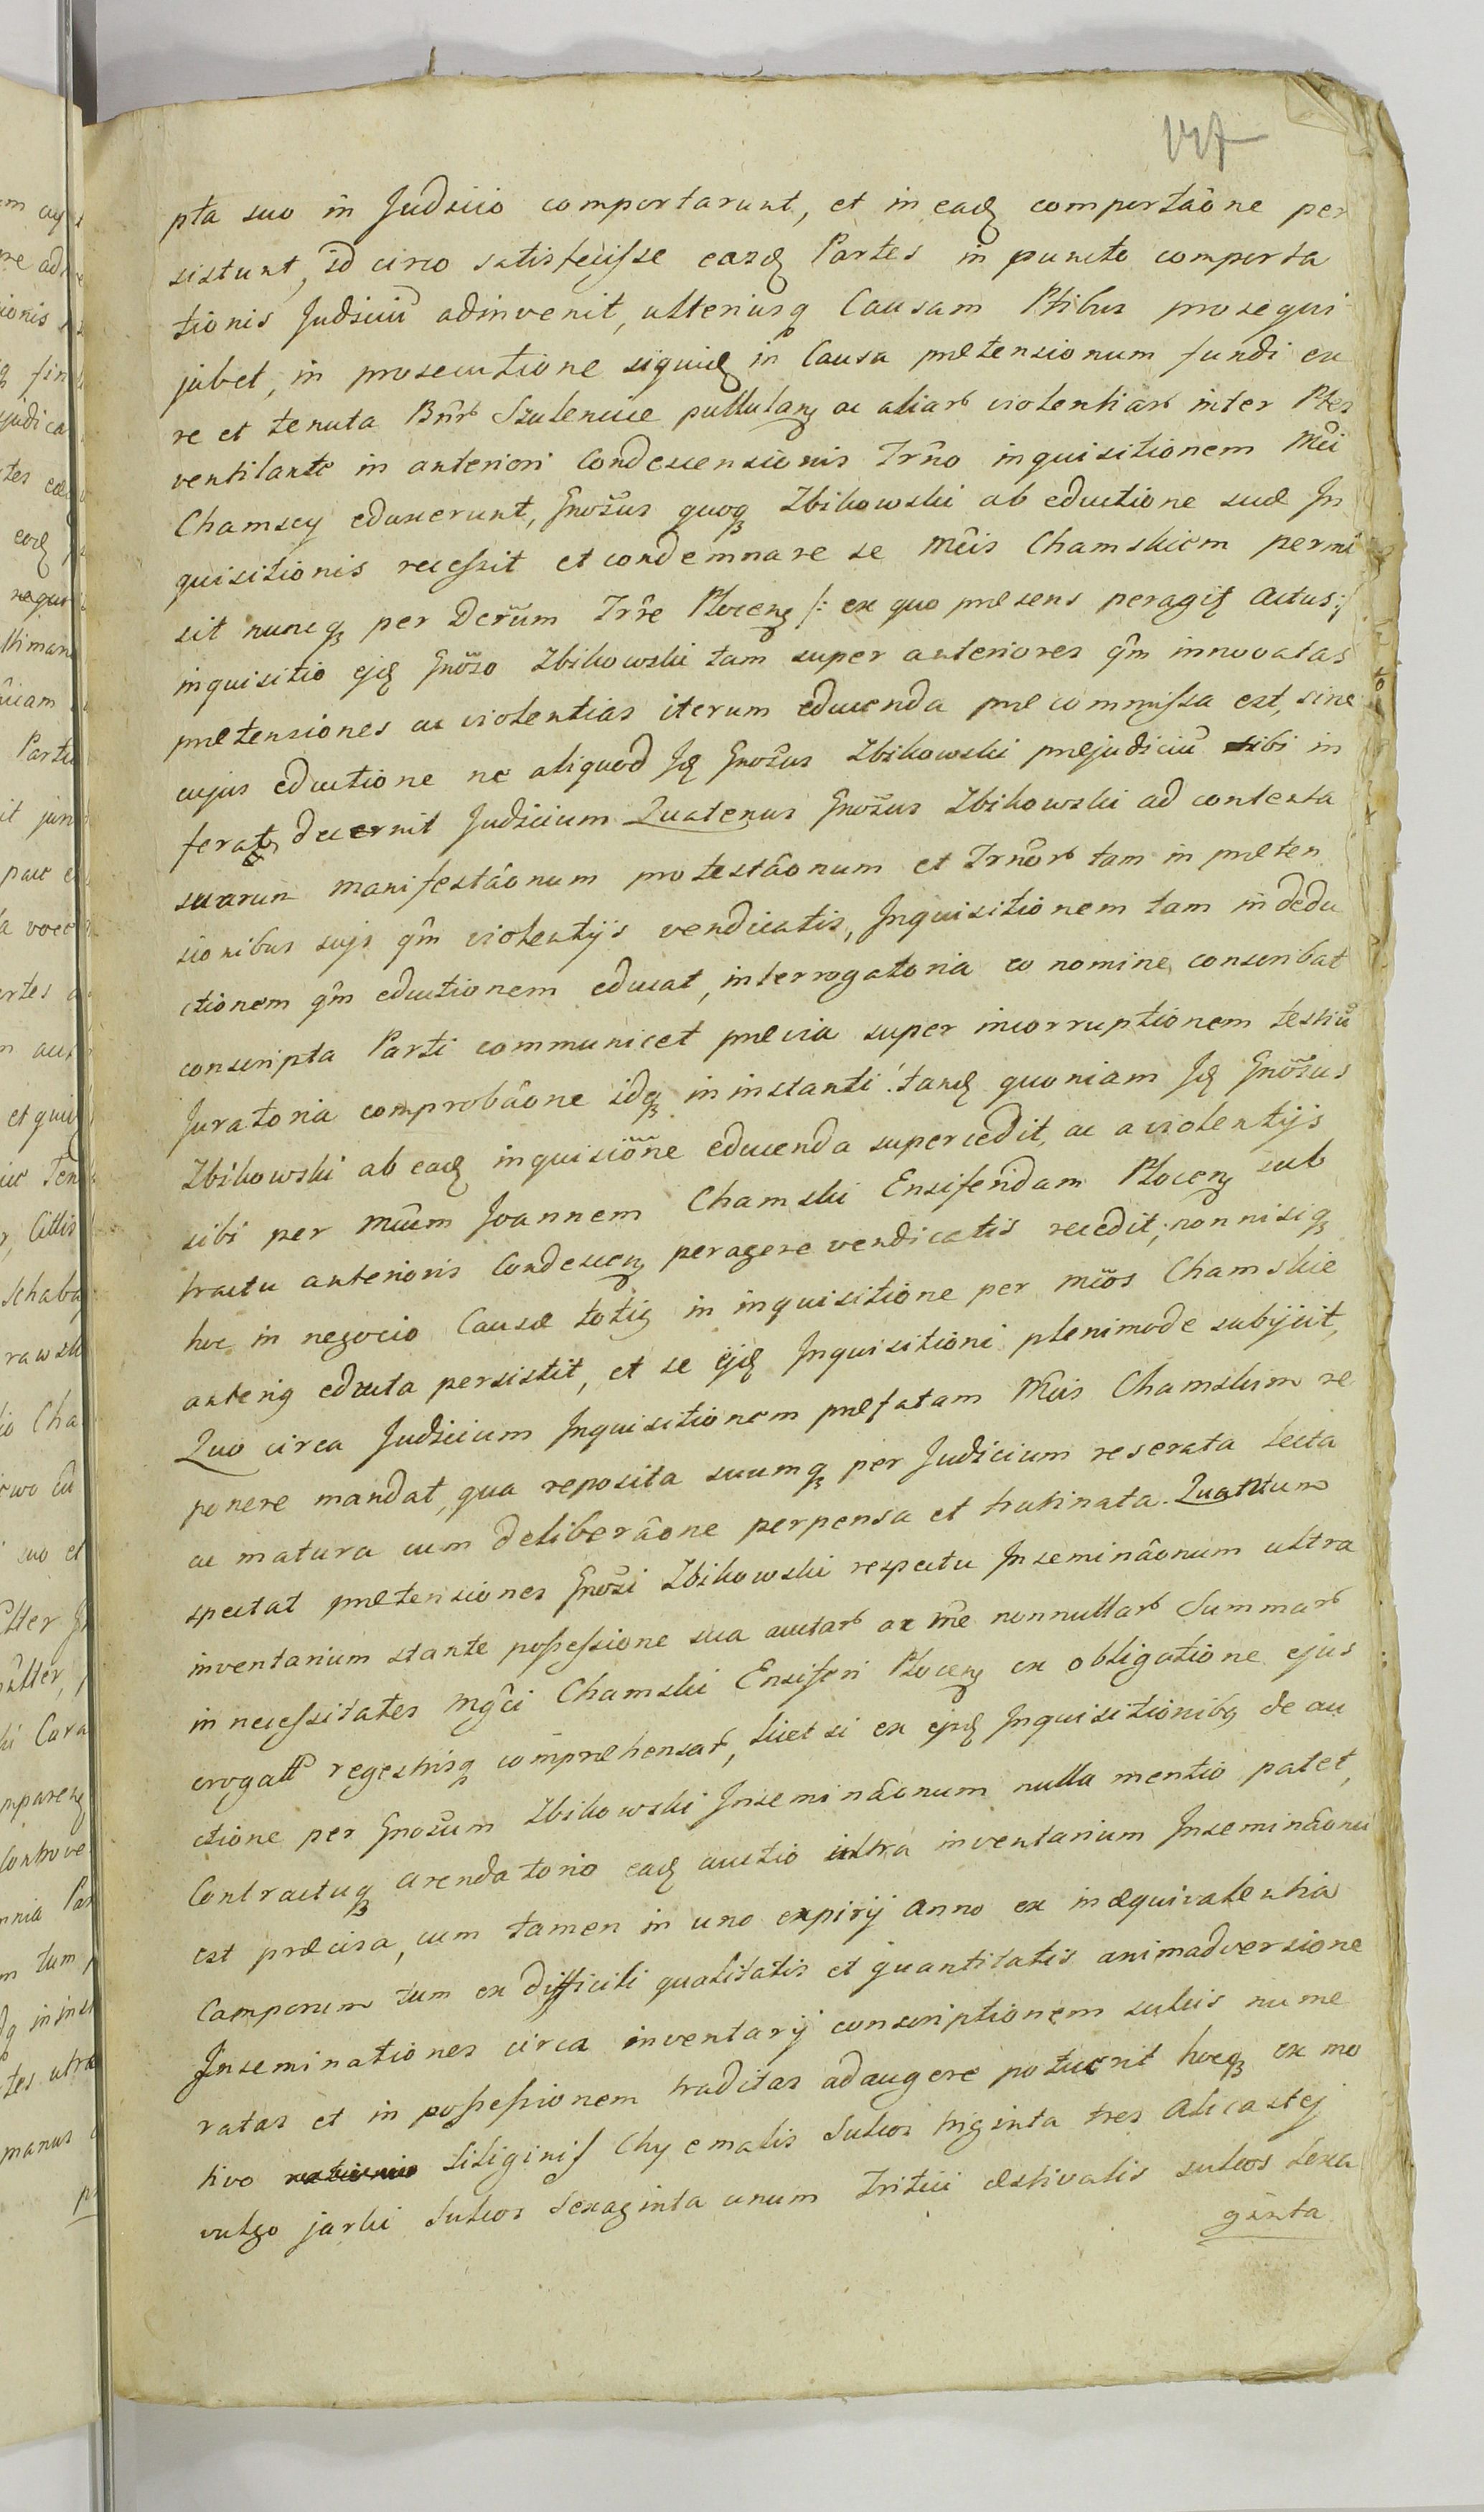 147
pta suo in Judicio comportarunt, et in eadꝫ comportãone per
sistunt, id circo satisfecisse easdꝫ Partes in puncto comporta
tionis Judiciũ adinvenit, ulteriusqꝫ Causam Ptibus prosequi
jubet, in prosecutione siquidꝫ in Causa prætensionum fundi ex
re et tenuta Bnr̃ Szulencice pullulanꝫ ac aliarꝫ violentiarꝫ inter Ptes
ventilante in anteriori Condescensionis Trño inquisitionem Mc̃i
Chamscy eduxerunt, Gnosus quoqꝫ Zbikowski ab eductione suæ In
quisitionis recessit et condemnare se Mc̃is Chamskiem permi
sit nuncqꝫ per Decr̃um Tr̃re Plocenꝫ /: ex quo præsens peragitꝫ Actus :/
inquisitio ejdꝫ Gnoso Zbikowski tam super anteriores qm̃ innovatas
prætensiones ac violentias iterum educenda præcommissa est, sine
cujus eductione ne aliquod Idꝫ Gnosus Zbikowski præjudiciũ sibi in
ferat, decernit Judicium Quatenus Gnosus Zbikowski ad contenta
suarum manifestãonum protestãonum et Trñorꝫ tam in præten
sionibus sujs qm̃ violentijs vendicatis, Inquisitionem tam in dedu
ctionem qm̃ eductionem educat, interrogatoria eo nomine conscribat
conscripta Parti communicet prævia super incorruptionem testiũ
Juratoria comprobãone idqꝫ in instanti. tandꝫ quoniam Idꝫ Gnosus
Zbikowski ab eadꝫ inquisiõne educenda supercedit, ac a violentijs
sibi per Mc̃um Joannem Chamski Ensiferidam Plocenꝫ sub
tractu anterioris Condescenꝫ peragere vendicatis recedit, nonnisiqꝫ
hoc in negocio Causæ totiꝫ in inquisitione per Mc̃os Chamskie
anteriꝫ educta persistit, et se ejdꝫ Inquisitioni plenimode subijcit,
Quo circa Judicium Inquisitionem præfatam Mc̃is Chamskim re
ponere mandat, qua reposita suumqꝫ per Judicium reserata lecta
ac matura cum deliberãone perpensa et trutinata. Quantum
spectat prætensiones Gnosi Zbikowski respectu Inseminãonum ultra
inventarium stante possessione sua auctarꝫ ac me nonnullarꝫ Summarꝫ
in necessitates Mgc̃i Chamski Ensiferi Plocenꝫ ex obligatione ejus
erogatꝫ regestrisqꝫ compræhensarꝫ, licet si ex ejusdꝫ Inquisitionibꝫ de au
ctione per Gnosum Zbikowski Inseminãonum nulla mentio patet,
Contractuqꝫ arendatorio eadꝫ auctio ultra inventarium Inseminãonũ
est præcisa, cum tamen in uno expirij anno ex inæquivalentia
Camporum tum ex difficili qualitatis et quantitatis animadversione
Inseminationes circa inventarij conscriptionem sulcis nume
ratas et in possessionem traditas adaugere potuerit hocqꝫ ex mo
tivo siliginis Chyemalis Sulcos triginta tres Alicastej
vulgo jarki Sulcos Sexaginta unum Tritici æstivalis sulcos sexa
ginta